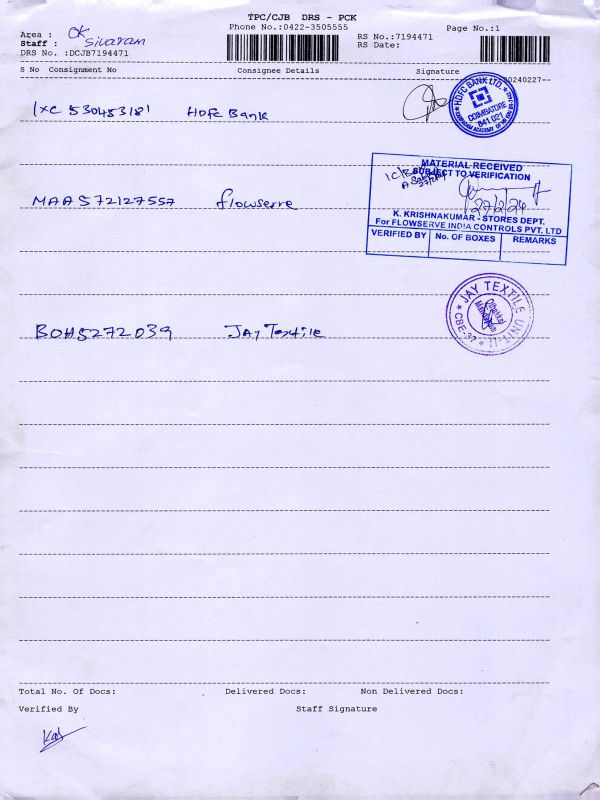 TPC/CJB DRS - PCK
Phone No.:0422-3505555
Page No.:1
Area : OK
Staff : Sivaram
RS No.:7194471
RS Date:
DRS No. :DCJB7194471
S No Consignment No Consignee Details Signature
20240227--
IXC 530453181 HDFC Bank
HDFC BANK LTD.
COIMBATORE
641 021
MATERIAL RECEIVED
SUBJECT TO VERIFICATION
27/2/24
MAA 572127557 flowserve
K. KRISHNAKUMAR - STORES DEPT.
For FLOWSERVE INDIA CONTROLS PVT. LTD
VERIFIED BY No. OF BOXES REMARKS
BOH5272039 JAY Textile
JAY TEXTILE UNIT-II
CBE-37
Total No. Of Docs: Delivered Docs: Non Delivered Docs:
Verified By Staff Signature